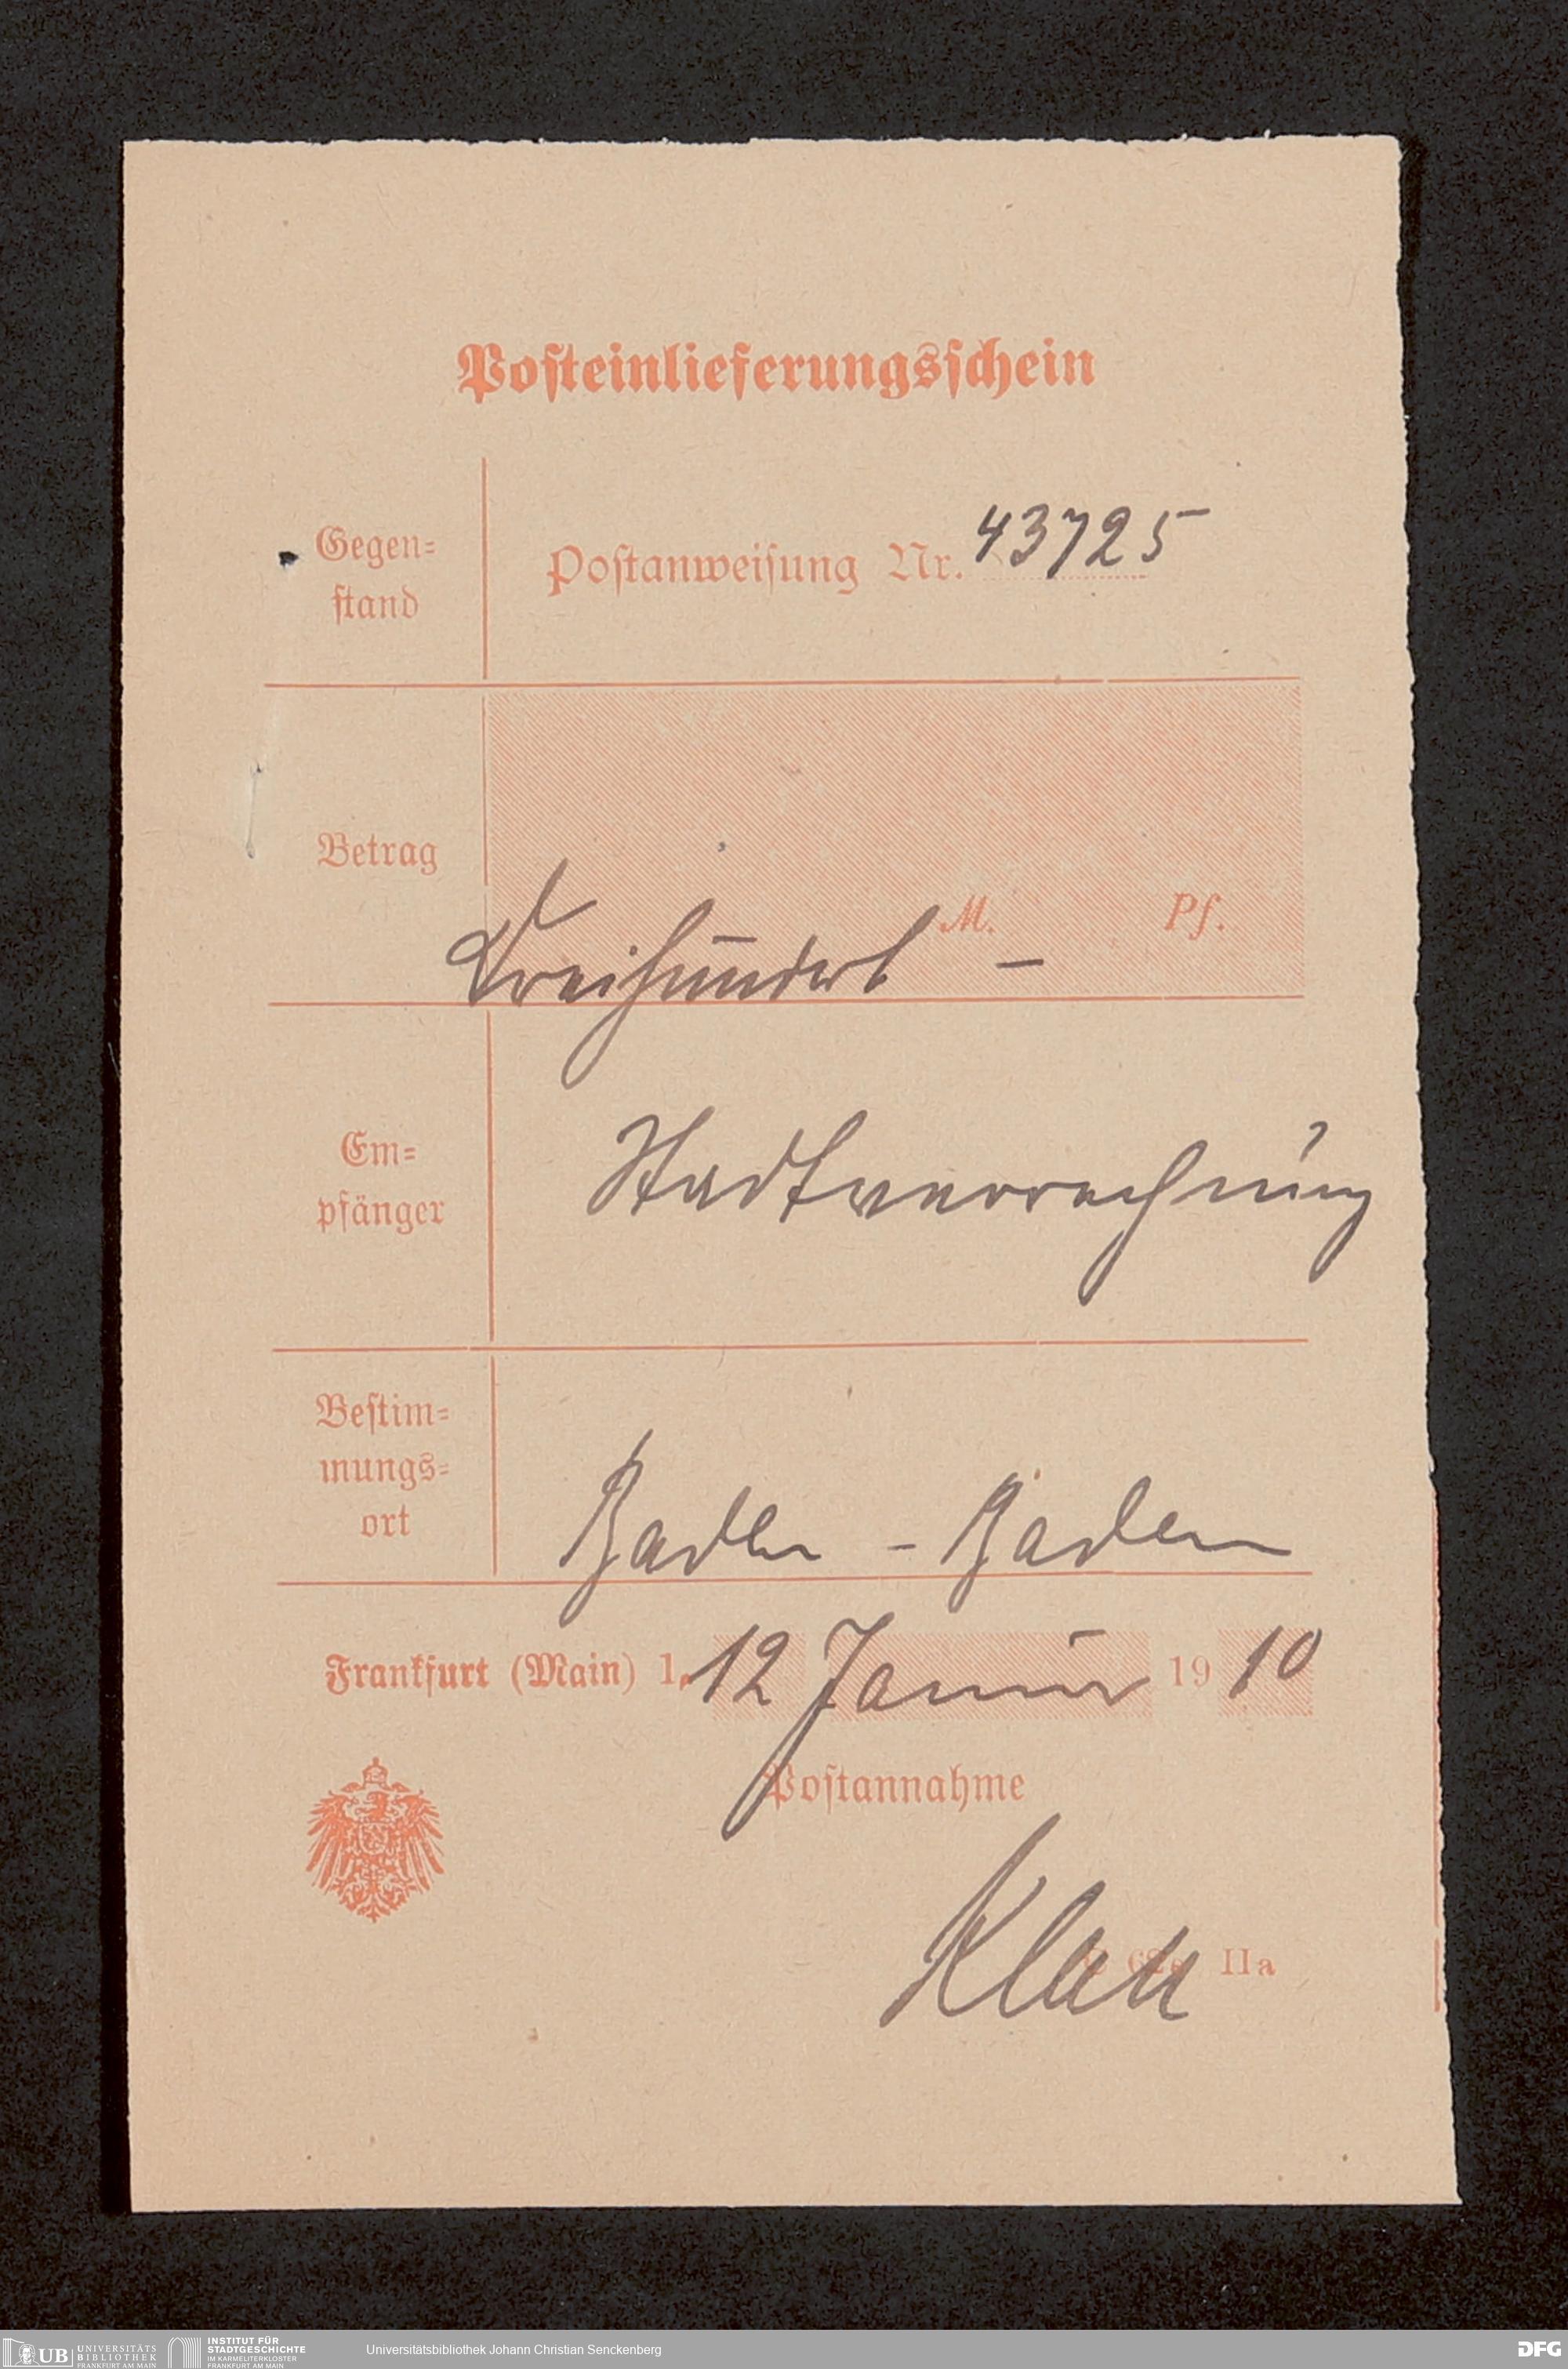 Posteinlieferungsschein
Gegen=
stand
Postanweisung Nr. 43725
Betrag
M. Pf.
Dreihundert –
Em=
pfänger
Stadtverrechnung
Bestim=
mungs=
ort
Baden - Baden
Frankfurt (Main) 1, 12 Januar 1910
Postannahme
Klau
IIa
UB UNIVERSITÄTS
BIBLIOTHEK
FRANKFURT AM MAIN
INSTITUT FÜR
STADTGESCHICHTE
IM KARMELITERKLOSTER
FRANKFURT AM MAIN
Universitätsbibliothek Johann Christian Senckenberg
DFG